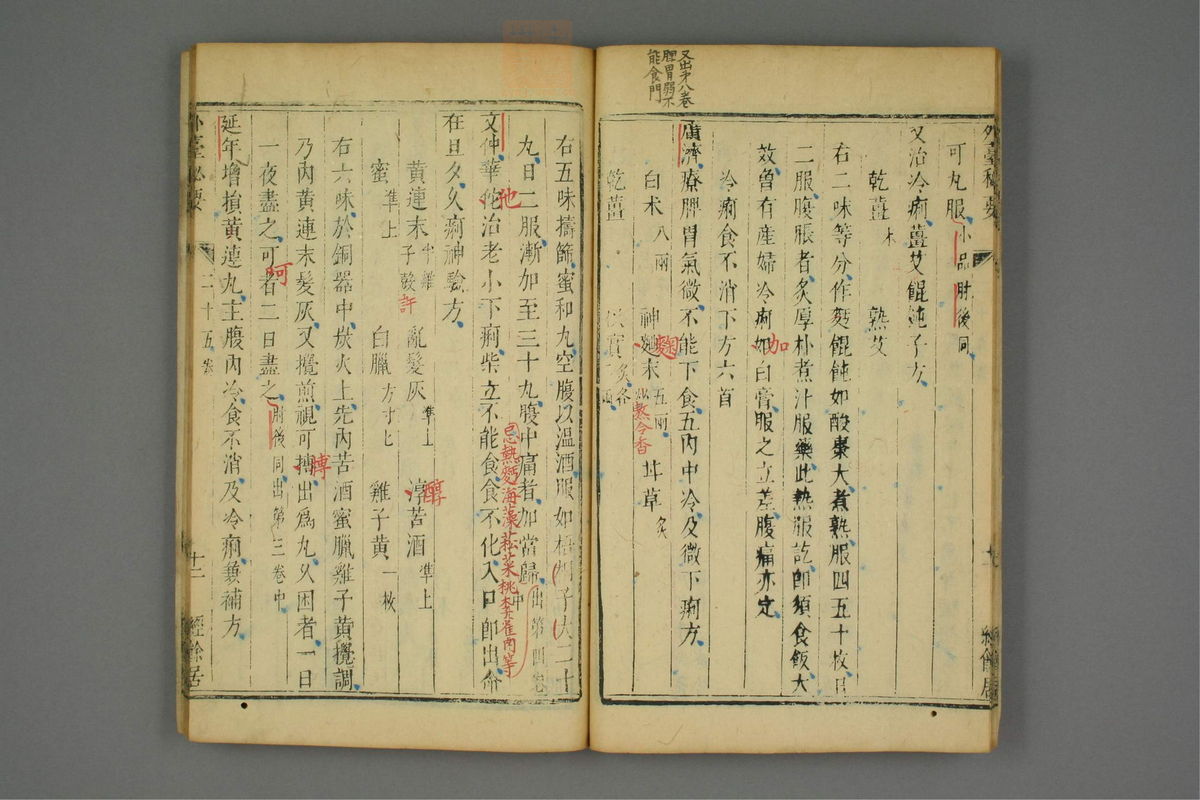 外臺秘要
可丸服 小品肘後同
又治冷痢薑艾餛飩子方
乾薑 末 熟艾
右二味等分作麪餛飩如酸棗大煮熟服四五十枚日
二服腹脹者炙厚朴煮汁服藥此熱服訖即須食飯大
效曾有産婦冷痢如白膏服之立差腹痛亦定
加
冷痢食不消下方六首
又出第八卷
脾胃弱不
能食門
廣濟療脾胃氣微不能下食五内中冷及微下痢方
白术 八兩 神麯末 五兩 甘草 炙
麴
熬令香
乾薑 枳實 炙各二兩
右五味擣篩蜜和丸空腹以温酒服如梧桐子大二十
丸日二服漸加至三十丸腹中痛者加當歸 出第四卷中
忌熱麪海藻菘菜桃李雀肉等
文仲華佗治老小下痢柴立不能食食不化入口即出命
他
在旦夕久痢神驗方
黄連末 半雞子殼 亂髮灰 準上 淳苦酒 準上
許
醇
蜜 準上 白臘 方寸匕 雞子黄 一枚
右六味於銅器中炭火上先内苦酒蜜臘雞子黄攪調
乃内黄連末髮灰又攪煎視可摶出爲丸久困者一日
一夜盡之可者二日盡之 肘後同出第三卷中
延年增損黄連丸主腹内冷食不消及冷痢兼補方
外臺秘要 二十五卷 十二 經餘居